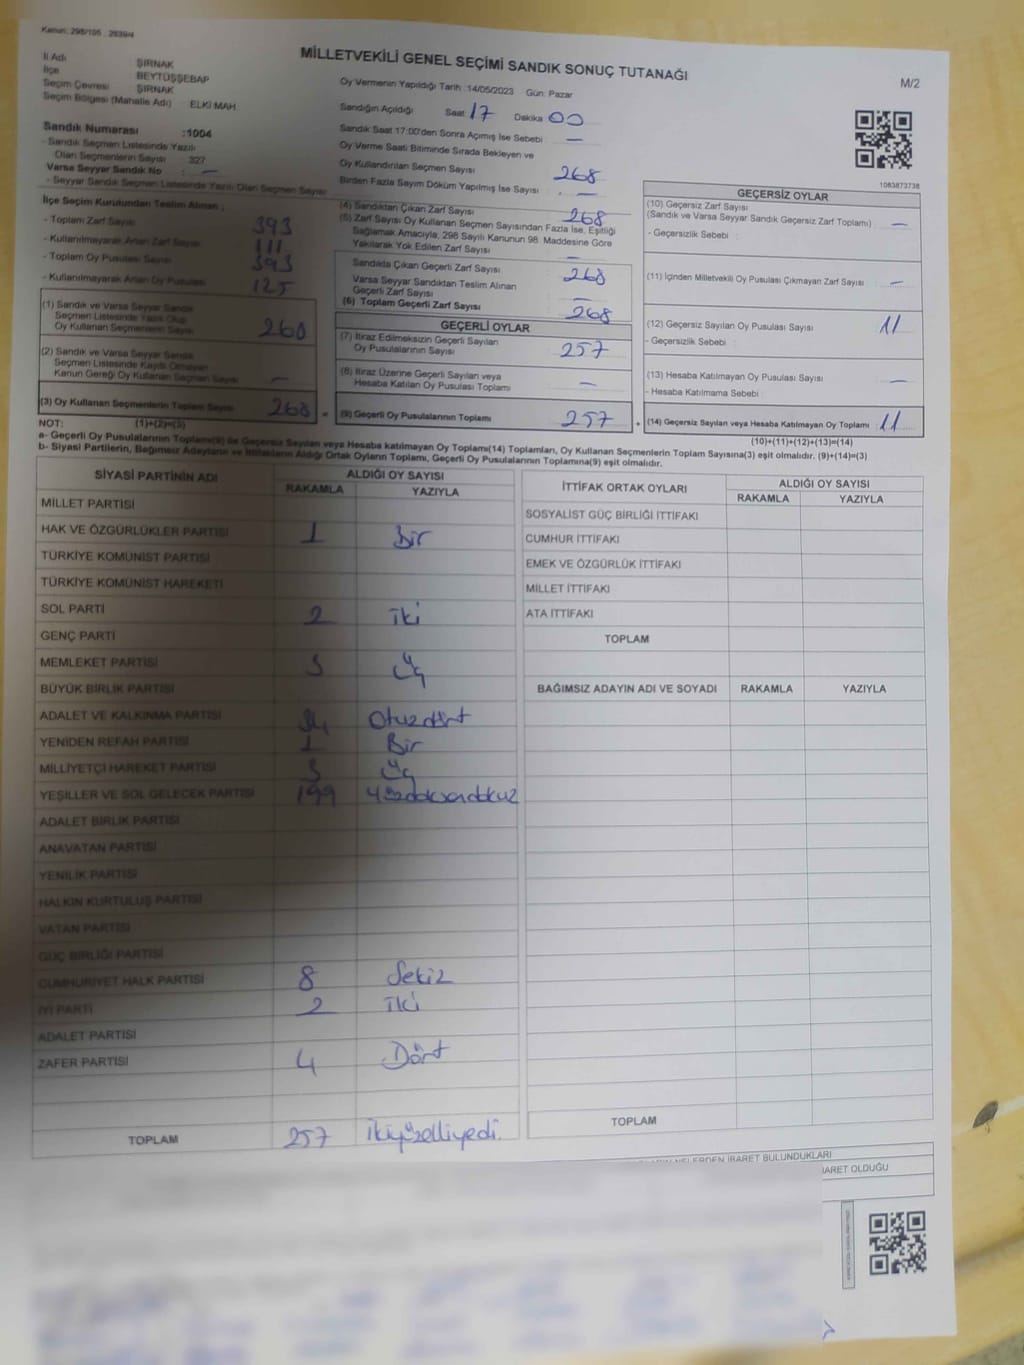 Kanun: 298/105 , 2839/4
MİLLETVEKİLİ GENEL SEÇİMİ SANDIK SONUÇ TUTANAĞI
M/2
İl Adı ŞIRNAK
İlçe BEYTÜŞŞEBAP
Seçim Çevresi ŞIRNAK
Seçim Bölgesi (Mahalle Adı) : ELKİ MAH
Oy Vermenin Yapıldığı Tarih :14/05/2023 Gün: Pazar
Sandığın Açıldığı Saat 17 Dakika 00
Sandık Saat 17:00'den Sonra Açımış İse Sebebi —
Oy Verme Saati Bitiminde Sırada Bekleyen ve
Oy Kullandırılan Seçmen Sayısı 268
Birden Fazla Sayım Döküm Yapılmış İse Sayısı : —
Sandık Numarası :1004
- Sandık Seçmen Listesinde Yazılı
Olan Seçmenlerin Sayısı : 327
Varsa Seyyar Sandık No : —
- Seyyar Sandık Seçmen Listesinde Yazılı Olan Seçmen Sayısı
1083873738
İlçe Seçim Kurulundan Teslim Alınan :
- Toplam Zarf Sayısı 393
- Kullanılmayarak Artan Zarf Sayısı 111
- Toplam Oy Pusulası Sayısı 393
- Kullanılmayarak Artan Oy Pusulası 125
(1) Sandık ve Varsa Seyyar Sandık
Seçmen Listesinde Yazılı Olup
Oy Kullanan Seçmenlerin Sayısı 268
(2) Sandık ve Varsa Seyyar Sandık
Seçmen Listesinde Kayıtlı Olmayan
Kanun Gereği Oy Kullanan Seçmen Sayısı —
(3) Oy Kullanan Seçmenlerin Toplam Sayısı 268 =
(4) Sandıktan Çıkan Zarf Sayısı 268
(5) Zarf Sayısı Oy Kullanan Seçmen Sayısından Fazla İse, Eşitliği
Sağlamak Amacıyla, 298 Sayılı Kanunun 98. Maddesine Göre
Yakılarak Yok Edilen Zarf Sayısı —
Sandıkta Çıkan Geçerli Zarf Sayısı 268
Varsa Seyyar Sandıktan Teslim Alınan
Geçerli Zarf Sayısı —
(6) Toplam Geçerli Zarf Sayısı 268
GEÇERLİ OYLAR
(7) İtiraz Edilmeksizin Geçerli Sayılan
Oy Pusulalarının Sayısı 257
(8) İtiraz Üzerine Geçerli Sayılan veya
Hesaba Katılan Oy Pusulası Toplamı —
(9) Geçerli Oy Pusulalarının Toplamı 257 +
GEÇERSİZ OYLAR
(10) Geçersiz Zarf Sayısı
(Sandık ve Varsa Seyyar Sandık Geçersiz Zarf Toplamı) —
- Geçersizlik Sebebi :
(11) İçinden Milletvekili Oy Pusulası Çıkmayan Zarf Sayısı —
(12) Geçersiz Sayılan Oy Pusulası Sayısı 11
- Geçersizlik Sebebi :
(13) Hesaba Katılmayan Oy Pusulası Sayısı —
- Hesaba Katılmama Sebebi :
(14) Geçersiz Sayılan veya Hesaba Katılmayan Oy Toplamı : 11
NOT: (1)+(2)=(3)
(10)+(11)+(12)+(13)=(14)
a- Geçerli Oy Pusulalarının Toplamı(9) ile Geçersiz Sayılan veya Hesaba katılmayan Oy Toplamı(14) Toplamları, Oy Kullanan Seçmenlerin Toplam Sayısına(3) eşit olmalıdır. (9)+(14)=(3)
b- Siyasi Partilerin, Bağımsız Adayların ve İttifakların Aldığı Ortak Oyların Toplamı, Geçerli Oy Pusulalarının Toplamına(9) eşit olmalıdır.
SİYASİ PARTİNİN ADI ALDIĞI OY SAYISI
RAKAMLA YAZIYLA
MİLLET PARTİSİ
HAK VE ÖZGÜRLÜKLER PARTİSİ 1 Bir
TÜRKİYE KOMÜNİST PARTİSİ
TÜRKİYE KOMÜNİST HAREKETİ
SOL PARTİ 2 iki
GENÇ PARTİ
MEMLEKET PARTİSİ 3 Üç
BÜYÜK BİRLİK PARTİSİ
ADALET VE KALKINMA PARTİSİ 34 Otuzdört
YENİDEN REFAH PARTİSİ 1 Bir
MİLLİYETÇİ HAREKET PARTİSİ 3 Üç
YEŞİLLER VE SOL GELECEK PARTİSİ 199 Yüzdoksandokuz
ADALET BİRLİK PARTİSİ
ANAVATAN PARTİSİ
YENİLİK PARTİSİ
HALKIN KURTULUŞ PARTİSİ
VATAN PARTİSİ
GÜÇ BİRLİĞİ PARTİSİ
CUMHURİYET HALK PARTİSİ 8 Sekiz
İYİ PARTİ 2 iki
ADALET PARTİSİ
ZAFER PARTİSİ 4 Dört
TOPLAM 257 ikiyüzelliyedi.
İTTİFAK ORTAK OYLARI ALDIĞI OY SAYISI
RAKAMLA YAZIYLA
SOSYALİST GÜÇ BİRLİĞİ İTTİFAKI
CUMHUR İTTİFAKI
EMEK VE ÖZGÜRLÜK İTTİFAKI
MİLLET İTTİFAKI
ATA İTTİFAKI
TOPLAM
BAĞIMSIZ ADAYIN ADI VE SOYADI RAKAMLA YAZIYLA
TOPLAM
NELERDEN İBARET BULUNDUKLARI
İBARET OLDUĞU